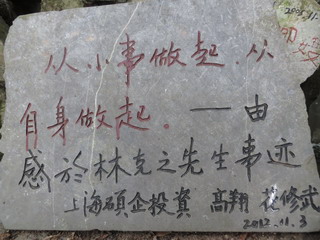 从小事做起.从
自身做起。——由
感於林克之先生事迹
上海碩企投資 高翔 花修武
2012.11.3